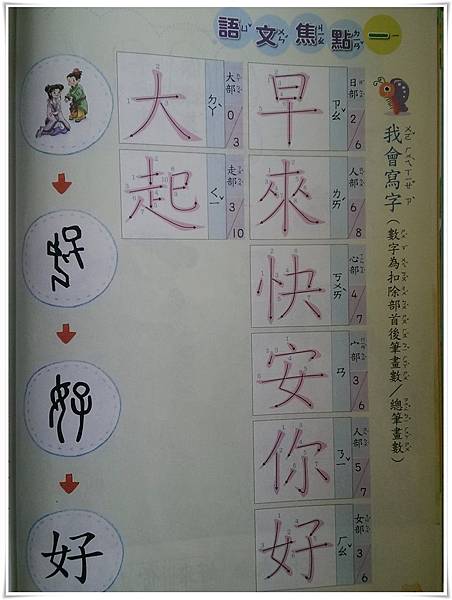 語文焦點一
我會寫字(數字為扣除部首後筆畫數/總筆畫數)
早 ㄗㄠˇ 日部 2/6
來 ㄌㄞˊ 人部 6/8
快 ㄎㄨㄞˋ 心部 4/7
安 ㄢ 宀部 3/6
你 ㄋㄧˇ 人部 5/7
好 ㄏㄠˇ 女部 3/6
大 ㄉㄚˋ 大部 0/3
起 ㄑㄧˇ 走部 3/10
好
好